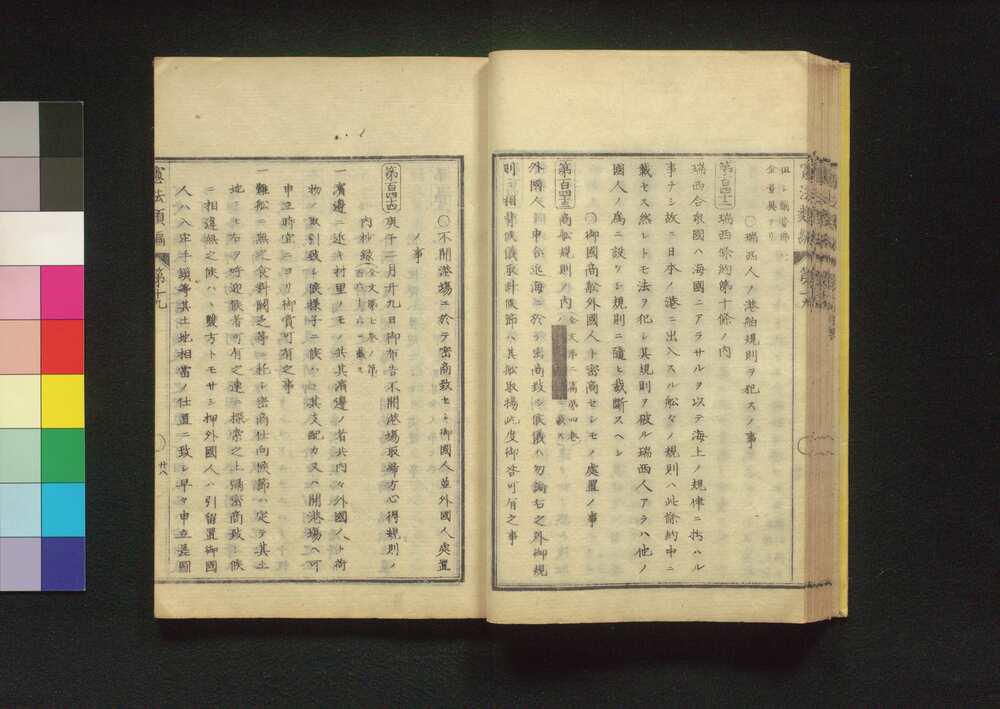 ○瑞西人ノ港舶規則ヲ犯スノ事
第百四十二 瑞西條約第十條ノ内
瑞西合衆國ハ海國ニアラサルヲ以テ海上ノ規律ニ拘ハル
事ナシ故ニ日本ノ港ニ出入スル舩々ノ規則ハ此條約中ニ
載セス然レトモ法ヲ犯シ其規則ヲ破ル瑞西人アラハ他ノ
國人ノ為ニ設ケシ規則ニ随ヒ裁斷スヘシ
○御國商舩外國人ト密商セシモノ處置ノ事
第百四十三 商舩規則ノ内
外國人ト申合近海ニ於テ密商致シ候儀ハ勿論右之外御規
則ニ相背候儀取計候節ハ其舩取揚此度御咎可有之事
憲法類編 第十九
○不開港場ニ於テ密商致セシ御國人並外國人處置
ノ事
第百四十四 庚午二月廿九日御布告不開港場取締方心得規則ノ
内抄録 全文第七巻ノ第
一 濱邊ニ近キ村里ノモノハ共其濱邊ノ者共内々外國ノ人ト荷
物ノ取引致シ候様子ニ候ハヽ其支配カ又ハ開港場ヘ可
申立時宜ニヨリ御賞可有之事
一 難舩ニ無之食料闕乏等ニ託シ密商仕向候節ハ定テ其土
地ニモ右ヲ待迎候者可有之速ニ探索之上彌密商致シ候
ニ相違無之候ハヽ雙方トモサシ押外國人ハ引留置御國
人ハ入牢手鎖等其土地相當ノ仕置ニ致シ早々申立差圖
廿八